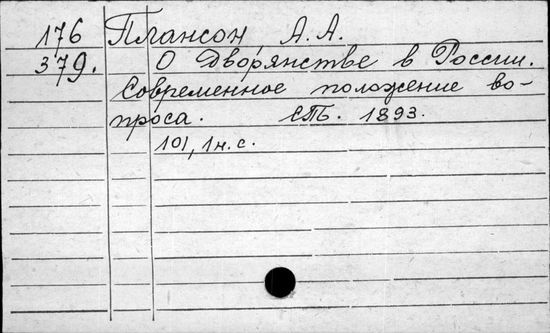 176 Плансон А. А.
379. О Дворянстве в России.
Современное положение во-
проса. СПБ. 1893.
101, 1 н. с.